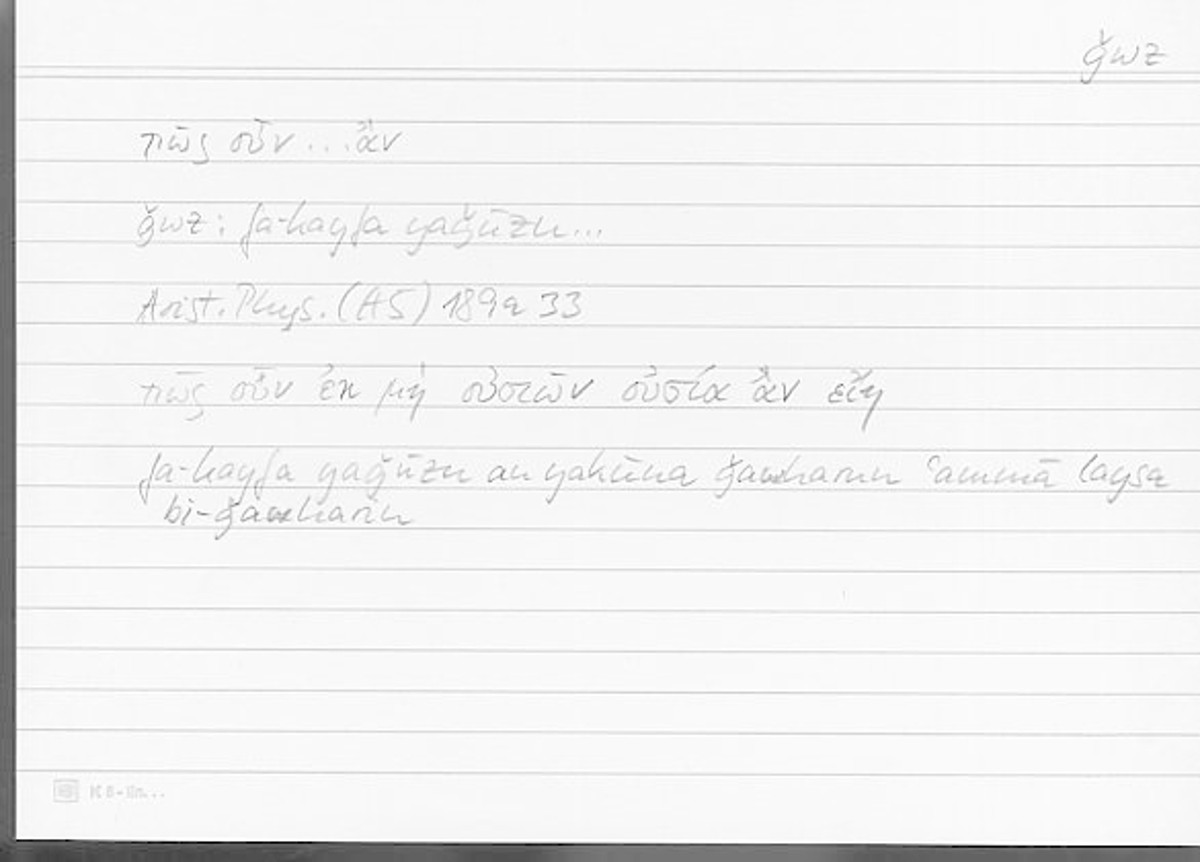 ǧwz
πῶς οὖν ... ἄν
ǧwz: fa-kayfa yaǧūzu...
Arist. Phys. (A5) 189a 33
πῶς οὖν ἐκ μὴ οὐσιῶν οὐσία ἂν εἴη
fa-kayfa yaǧūzu an yakūna ǧawharun ʿammā laysa
bi-ǧawharin